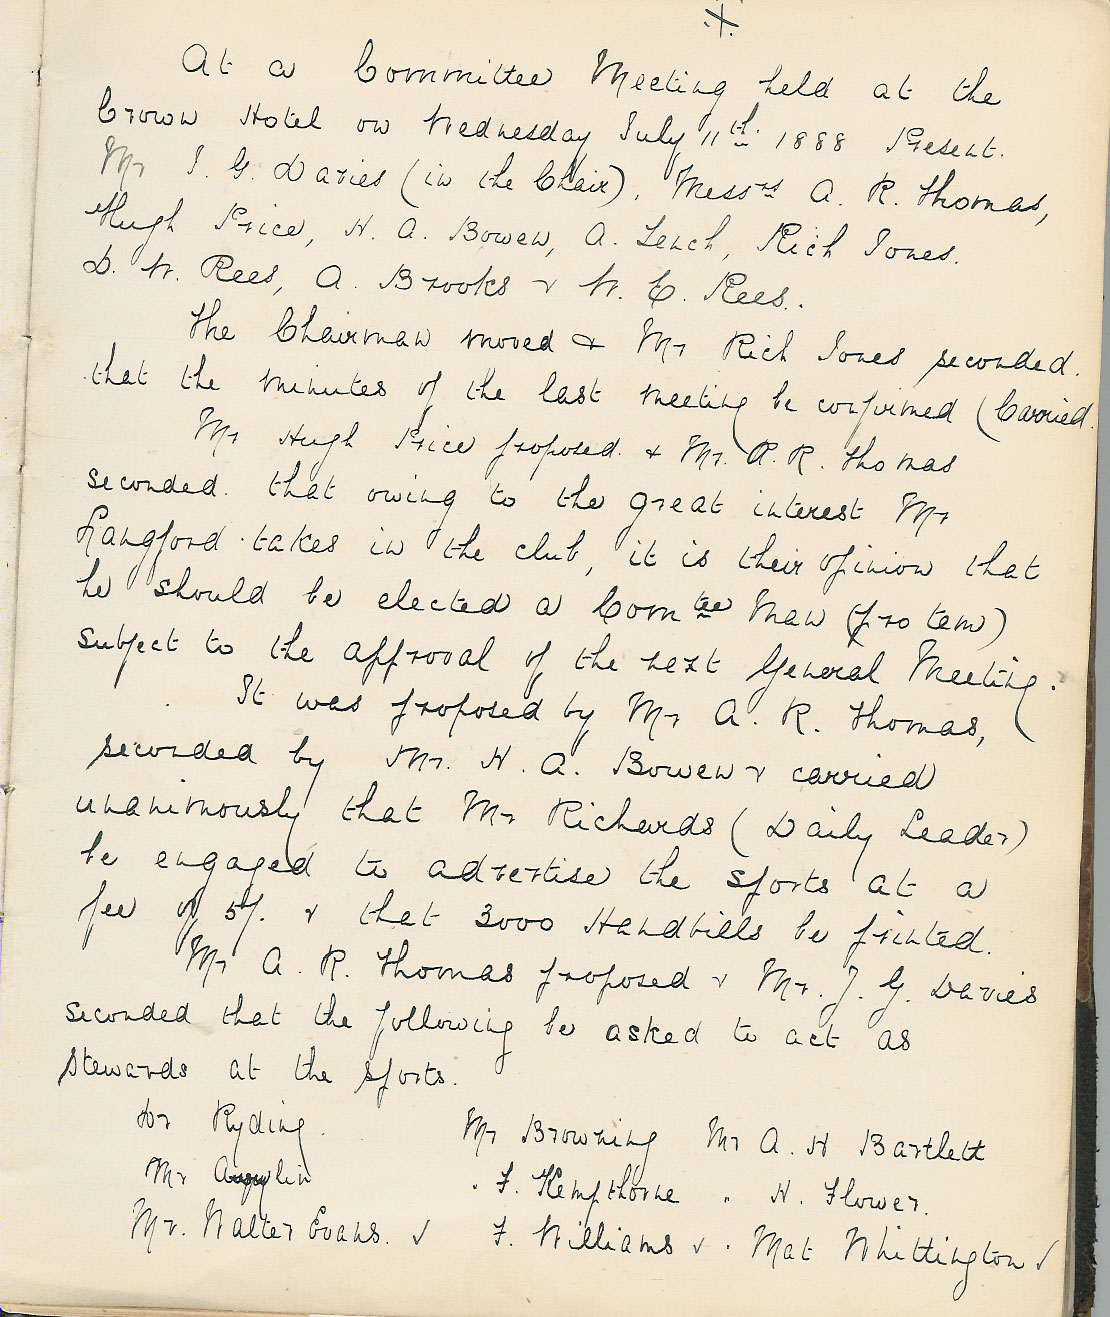 At a Committee Meeting held at the
Crown Hotel on Wednesday July 11th. 1888 Present.
Mr J. G. Davies (in the Chair), Messrs A. R. Thomas,
Hugh Price, H. A. Bowen, A. Lench, Rich Jones.
D. W. Rees, A. Brooks & W. E. Rees.
The Chairman moved & Mr Rich Jones seconded.
that the minutes of the last meeting be confirmed (Carried.
Mr Hugh Price proposed. & Mr. A. R. Thomas
seconded. that owing to the great interest Mr
Langford takes in the club, it is their opinion that
he should be elected a Comtee Man (pro tem)
subject to the approval of the next General Meeting.
It was proposed by Mr A. R. Thomas,
seconded by Mr. H. A. Bowen & carried
unanimously that Mr Richards (Daily Leader)
be engaged to advertise the sports at a
fee of 5/. & that 3000 Handbills be printed.
Mr A. R. Thomas proposed & Mr. J. G. Davies
seconded that the following be asked to act as
Stewards at the sports.
Dr Ryding. Mr Browning Mr A. H Bartlett
Mr . F. Kempthorne . H. Flower.
Mr. Walter Evans. ✓ F. Williams ✓ . Mat Whittington ✓